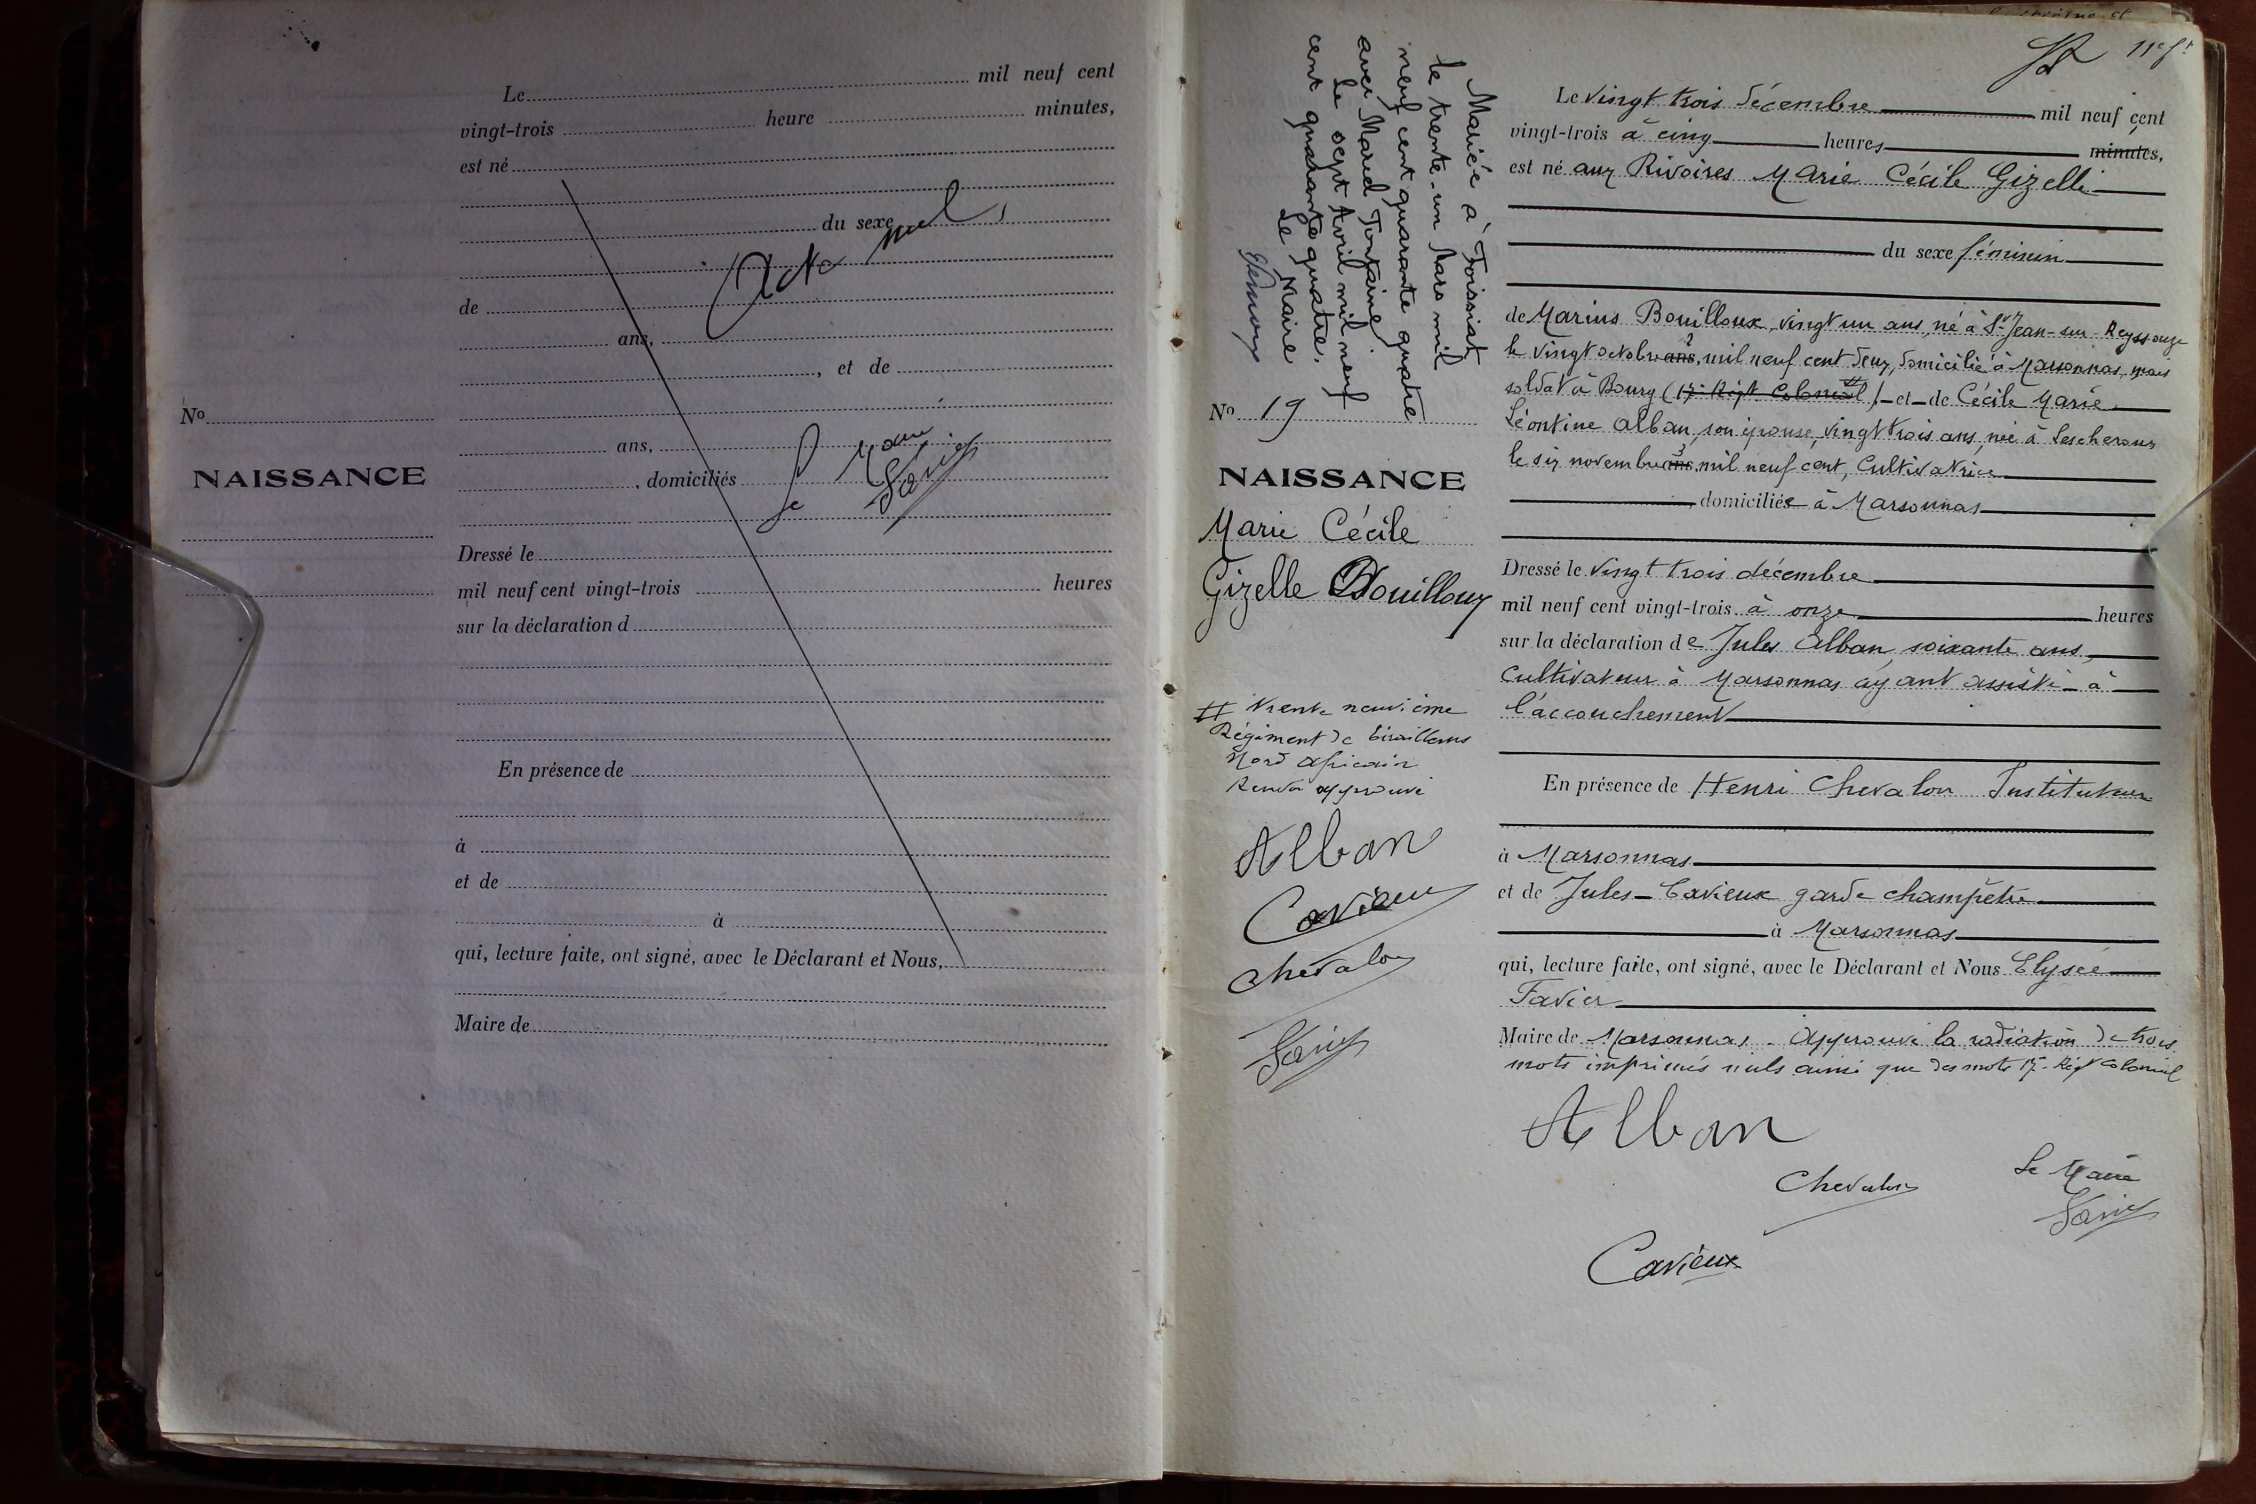 Le mil neuf cent
vingt-trois heure minutes,
est né
du sexe
Acte nul
de
ans,
, et de
No
ans,
Le Maire
Favier
NAISSANCE
, domiciliés
Dressé le
mil neuf cent vingt-trois heures
sur la déclaration d
En présence de
à
et de
à
qui, lecture faite, ont signé, avec le Déclarant et Nous,
Maire de
Mariée à Foissiat
le trente-un Mars mil
neuf cent quarante quatre
avec Marcel Fontaine.
Le sept Avril mil neuf
cent quarante quatre.
Le Maire
No 19
NAISSANCE
Marie Cécile
Gizelle Bouilloux
# trente neuvième
Régiment de tirailleurs
Nord africain
Renvoi approuvé
Alban
Cavieux
Chevalon
Favier
11e ft
Le vingt trois décembre mil neuf cent
vingt-trois à cinq heures minutes,
est né aux Rivoires Marie Cécile Gizelle
du sexe féminin
de Marius Bouilloux, vingt un ans, né à St Jean-sur-Reyssouze
le vingt octobre ans, mil neuf cent deux, domicilié à Marsonnas, mais
soldat à Bourg (17e Rigt Colonial #) et de Cécile Marie
Léontine Alban, son épouse, vingt trois ans, née à Lescheroux
le six novembre ans, mil neuf cent, Cultivatrice
domiciliée à Marsonnas
Dressé le vingt trois décembre
mil neuf cent vingt-trois à onze heures
sur la déclaration de Jules Alban, soixante ans,
Cultivateur à Marsonnas ayant assisté à
l'accouchement
En présence de Henri Chevalon Instituteur
à Marsonnas
et de Jules-Cavieux garde champêtre
à Marsonnas
qui, lecture faite, ont signé, avec le Déclarant et Nous Elysée
Favier
Maire de Marsonnas. Approuvé la radiation de trois
mots imprimés nuls ainsi que des mots 17e Rigt Colonial
Alban
Chevalon
Le Maire
Favier
Cavieux